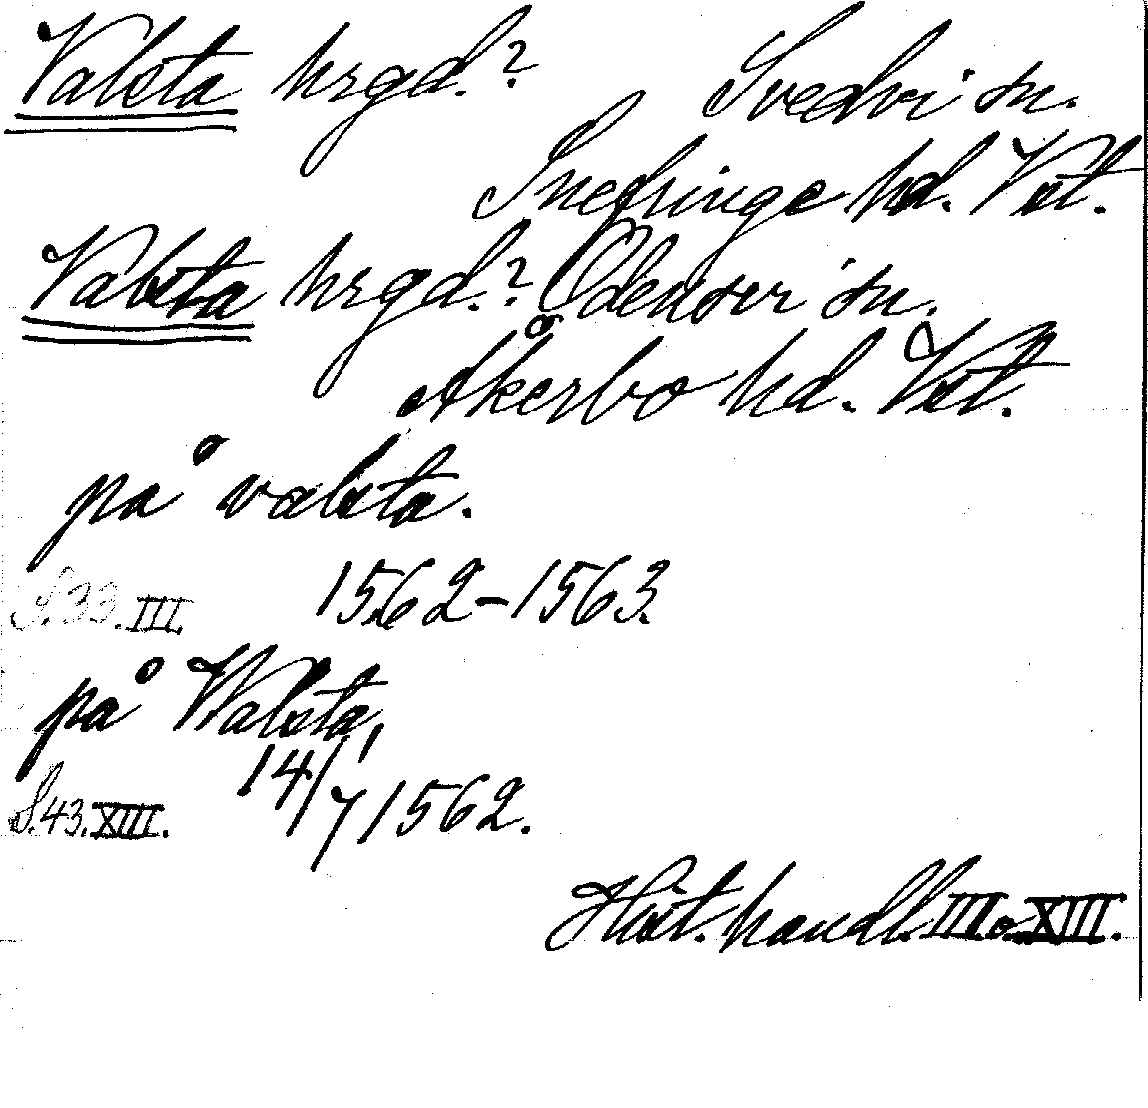 Valsta hrgd.? Svedvi sn.
Snefringe hd. Vst.
Valsta hrgd.? Odensvi sn.
Åkerbo hd. Vst.
på valsta.
S. 33. III. 1562-1563.
på Walsta,
S. 43. XIII. 14/7 1562.
Hist. handl. III o. XIII.